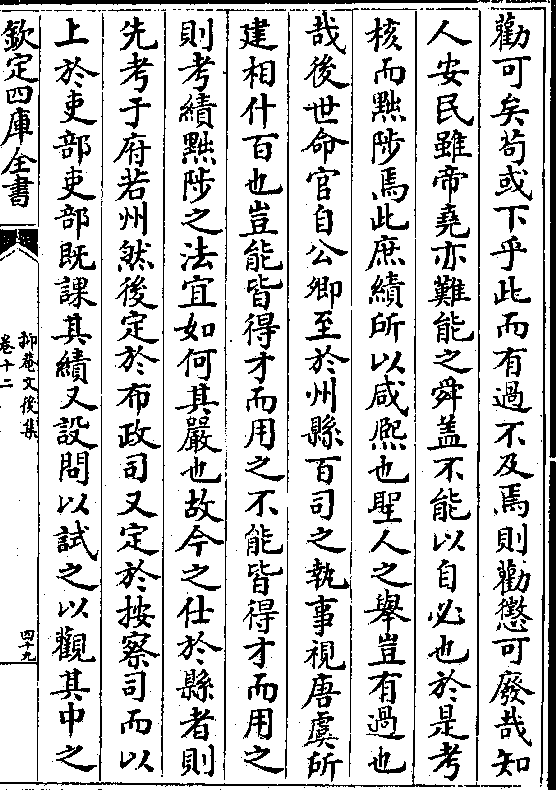 勸可矣苟或下乎此而有過不及焉則勸懲可廢哉知
人安民雖帝堯亦難能之舜盖不能以自必也於是考
核而黜陟焉此庶績所以咸熈也聖人之舉豈有過也
哉後世命官自公卿至於州縣百司之執事視唐虞所
建相什百也豈能皆得才而用之不能皆得才而用之
則考績黜陟之法宜如何其嚴也故今之仕於縣者則
先考于府若州然後定於布政司又定於按察司而以
上於吏部吏部既課其績又設問以試之以觀其中之
欽定四庫全書
抑菴文後集
卷十二
四十九